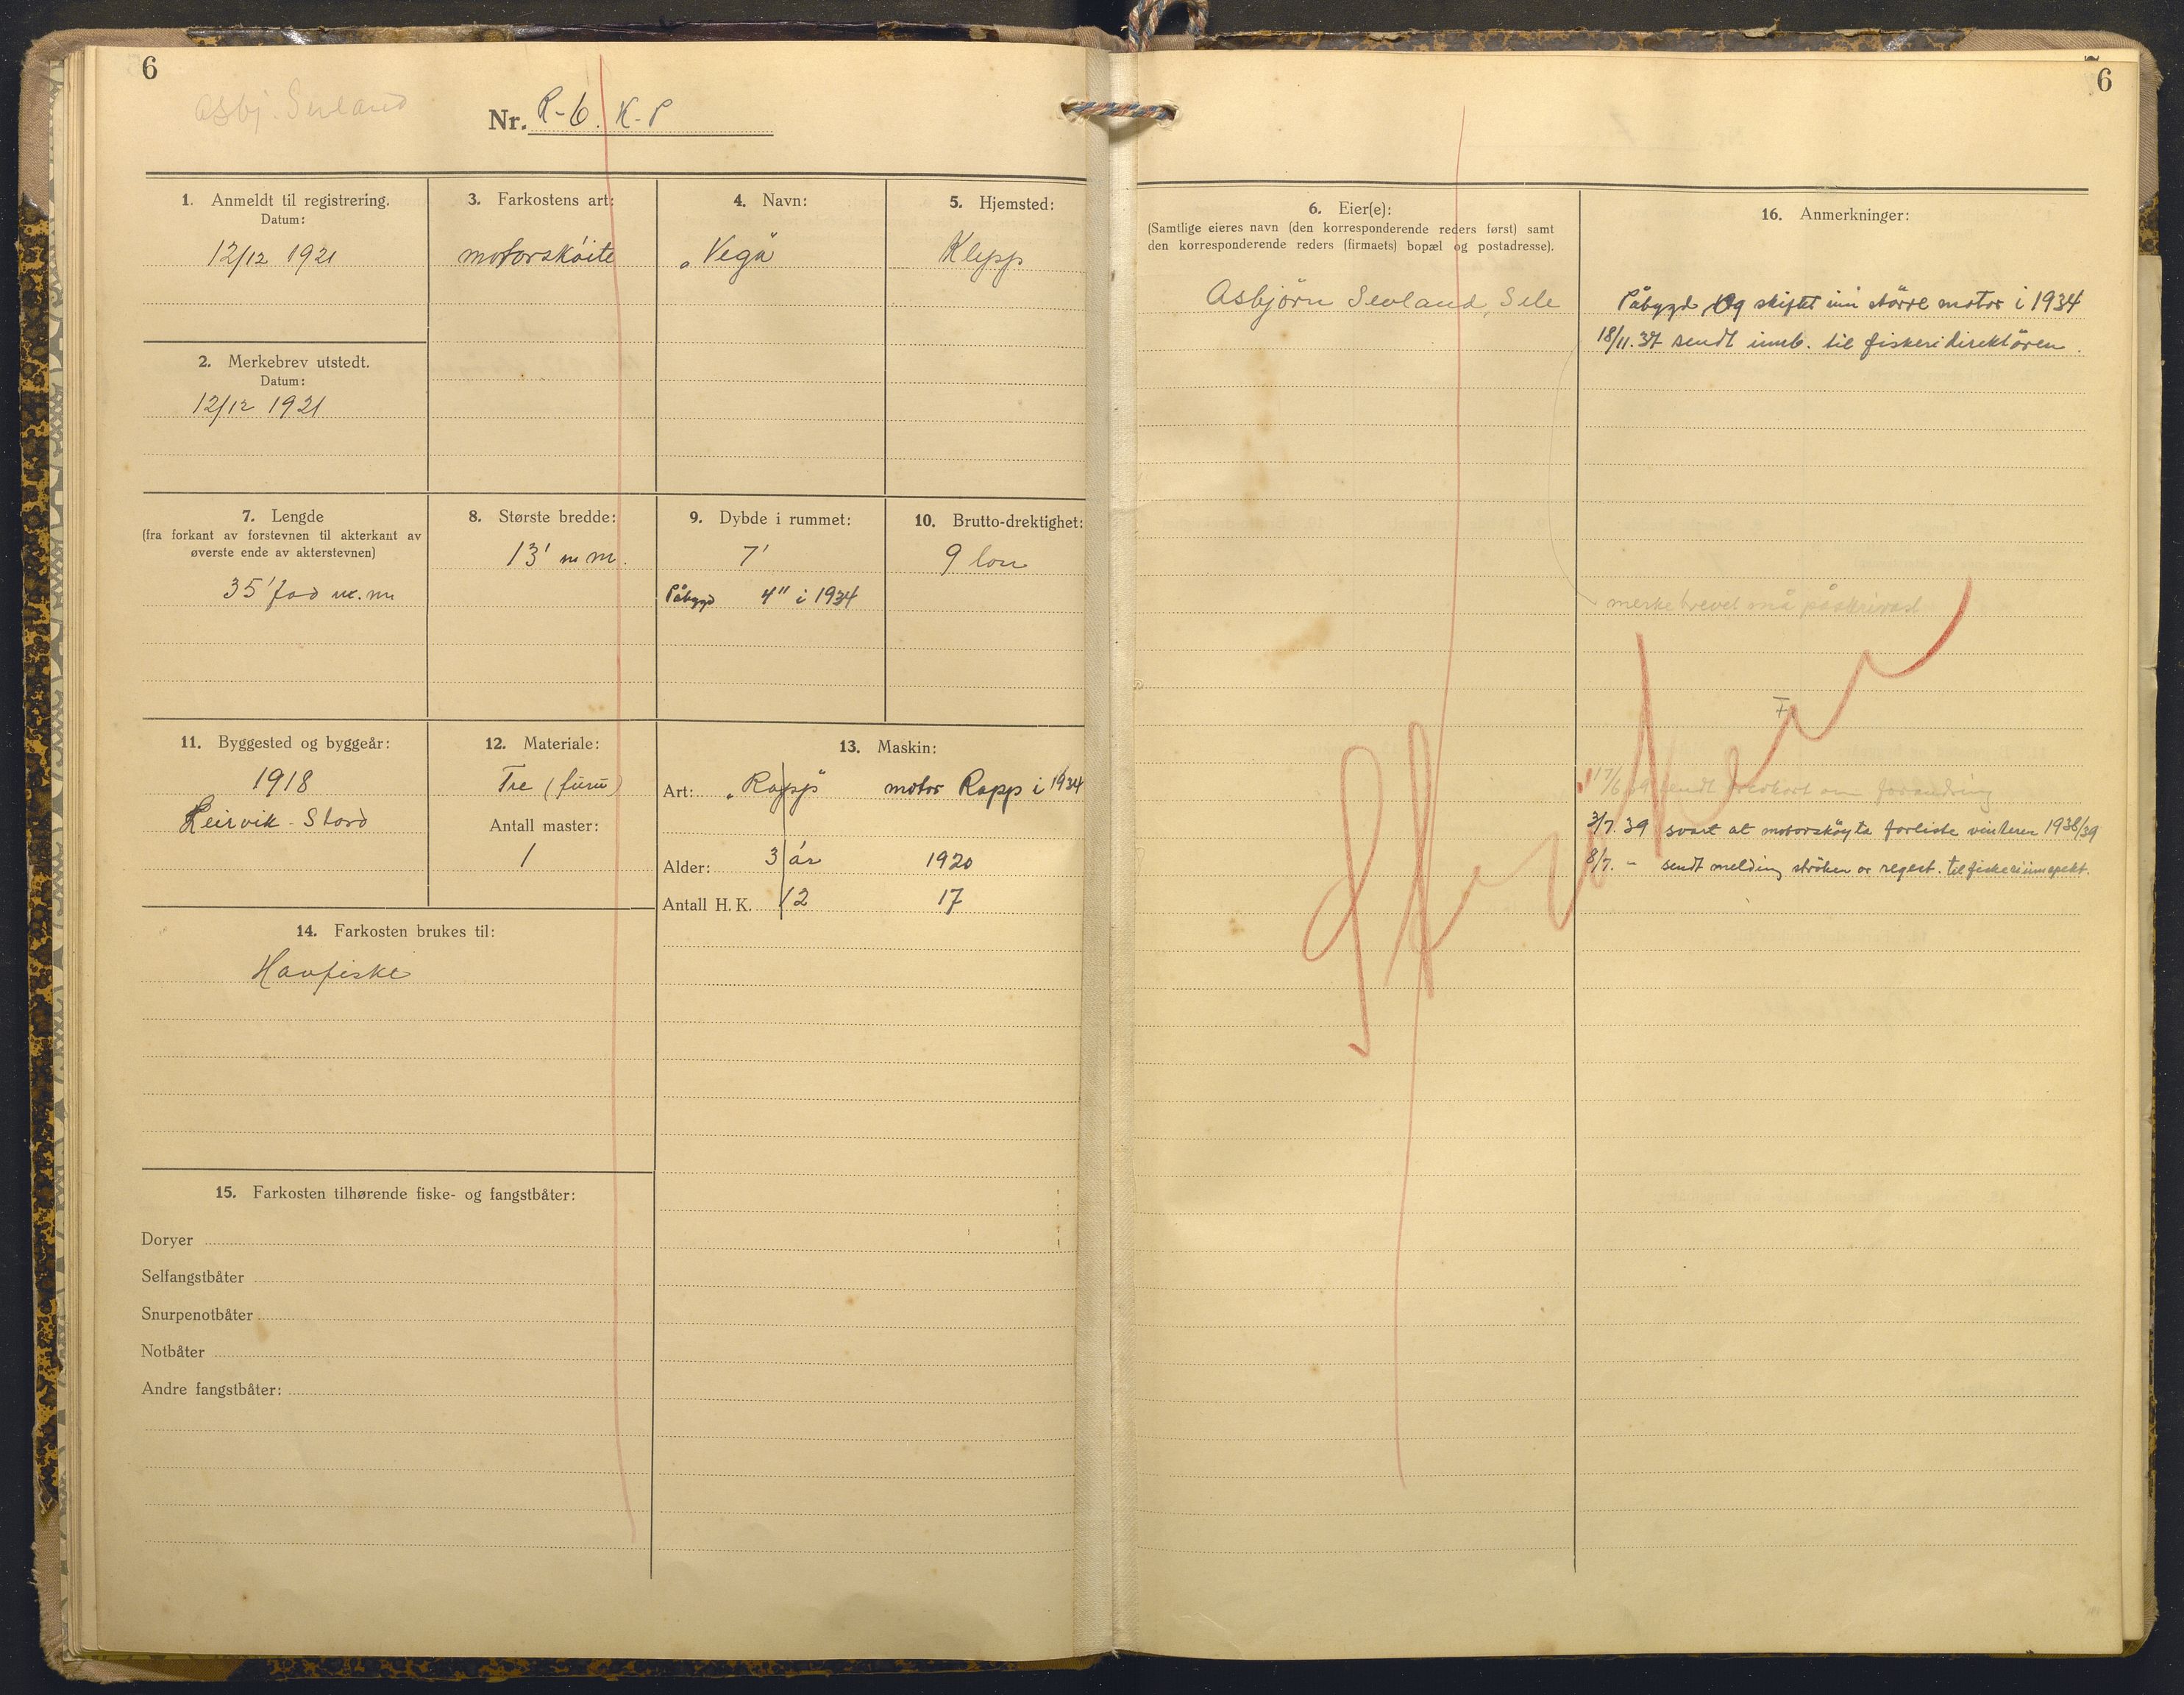 6
Asbj. Sevland
Nr. R-6. K-P
1. Anmeldt til registrering.
Datum:
12/12 1921
2. Merkebrev utstedt.
Datum:
12/12 1921
3. Farkostens art:
motorskøite
4. Navn:
„Vega"
5. Hjemsted:
Klepp
7. Lengde
(fra forkant av forstevnen til akterkant av
øverste ende av akterstevnen)
35' fod m.m
8. Største bredde:
13' m m.
9. Dybde i rummet:
7'
Påbygd 4" i 1934
10. Brutto-drektighet:
9 ton
11. Byggested og byggeår:
1918
Leirvik - Stord
12. Materiale:
Tre (furu)
Antall master:
1
13. Maskin:
Art: „Rapp" motor Rapp i 1934
Alder: 3 år 1920
Antall H. K. 12 17
14. Farkosten brukes til:
Havfiske
15. Farkosten tilhørende fiske- og fangstbåter:
Doryer
Selfangstbåter
Snurpenotbåter
Notbåter
Andre fangstbåter:
6
6. Eier(e):
(Samtlige eieres navn (den korresponderende reders først) samt
den korresponderende reders (firmaets) bopæl og postadresse).
Asbjörn Sevland, Sele
16. Anmerkninger:
Påbygd, Og skiftet inn större motor i 1934
18/11. 37 sendt innb. til fiskeridirektören.
merkebrevet må påskrivast
17/6 39 sendt brevkort om forandring
3/7. 39 svart at motorsköyta forliste vinteren 1938/39
8/7. - sendt melding ströken or regest. til fiskeriinspekt.